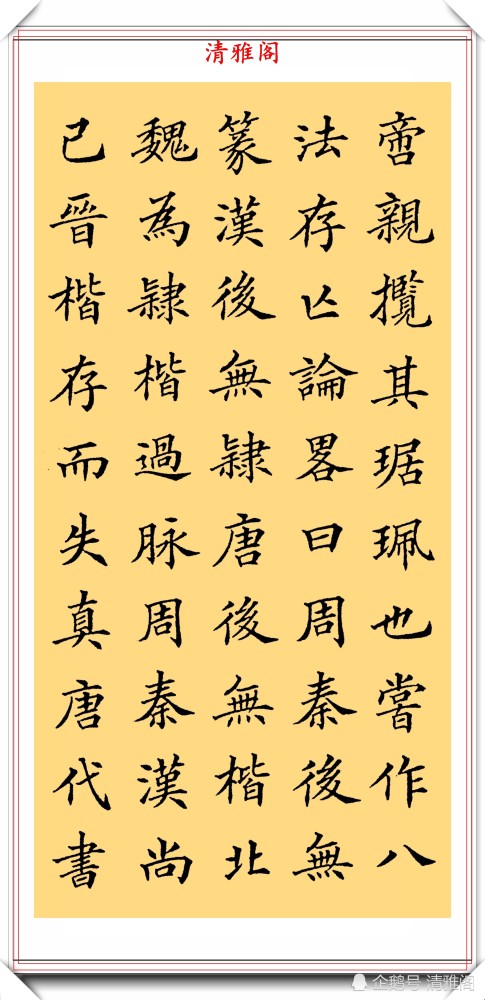 清雅阁
啻親攬其琚珮也嘗作八
法存亾論畧曰周秦後無
篆漢後無隸唐後無楷北
魏為隸楷過脉周秦漢尚
已晉楷存而失真唐代書
企鹅号 清雅阁